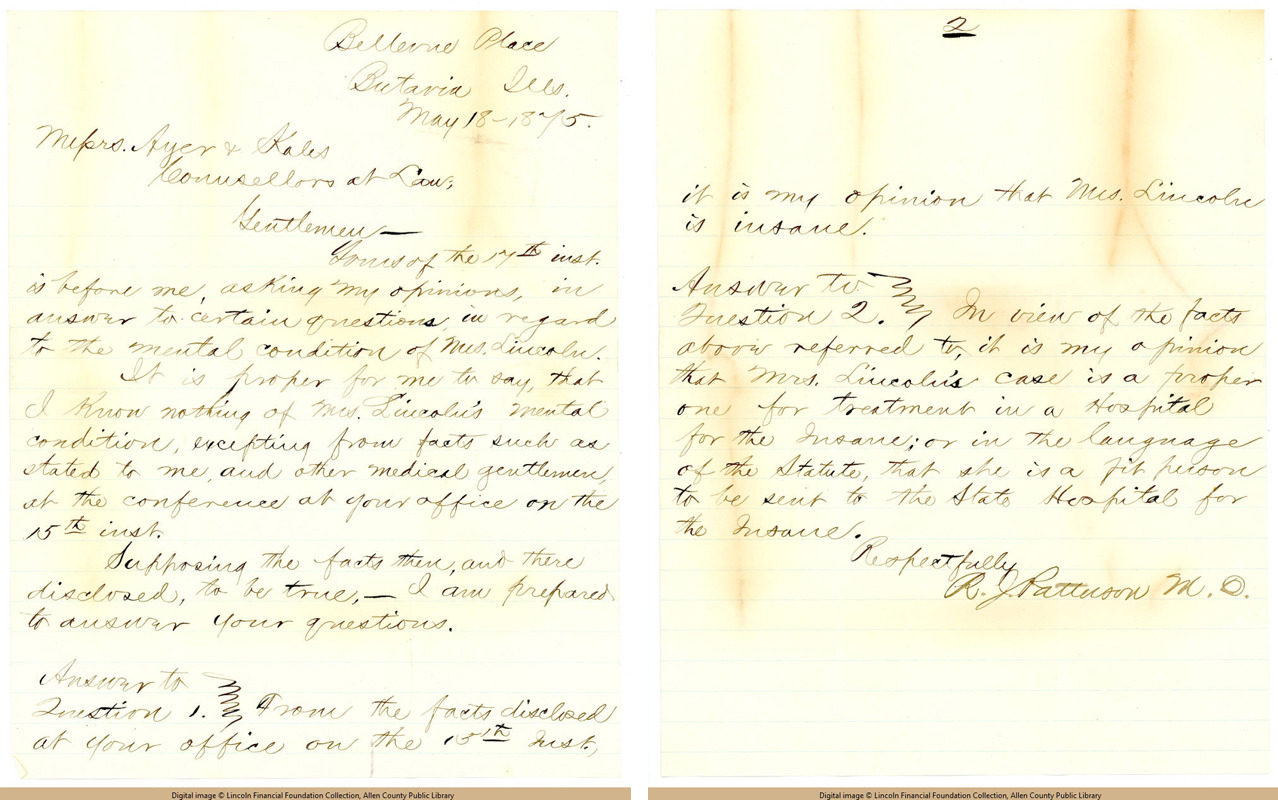 Bellevue Place
Batavia Ills.
May 18-1875.
Messrs. Ayer & Kales
Counsellors at Law;
Gentlemen —
Yours of the 17th inst.
is before me, asking my opinions, in
answer to certain questions, in regard
to the mental condition of Mrs. Lincoln.
It is proper for me to say, that
I know nothing of Mrs. Lincoln's mental
condition, excepting from facts such as
stated to me, and other medical gentlemen,
at the conference at your office on the
15th inst.
Supposing the facts then, and there
disclosed, to be true, — I am prepared
to answer your questions.
Answer to
Question 1. From the facts disclosed
at your office on the 15th Inst,
Digital image © Lincoln Financial Foundation Collection, Allen County Public Library
2
it is my opinion that Mrs. Lincoln
is insane.
Answer to
Question 2. In view of the facts
above referred to, it is my opinion
that Mrs. Lincoln's case is a proper
one for treatment in a Hospital
for the Insane; or in the language
of the Statute, that she is a fit person
to be sent to the State Hospital for
the Insane.
Respectfully
R. J. Patterson M.D.
Digital image © Lincoln Financial Foundation Collection, Allen County Public Library